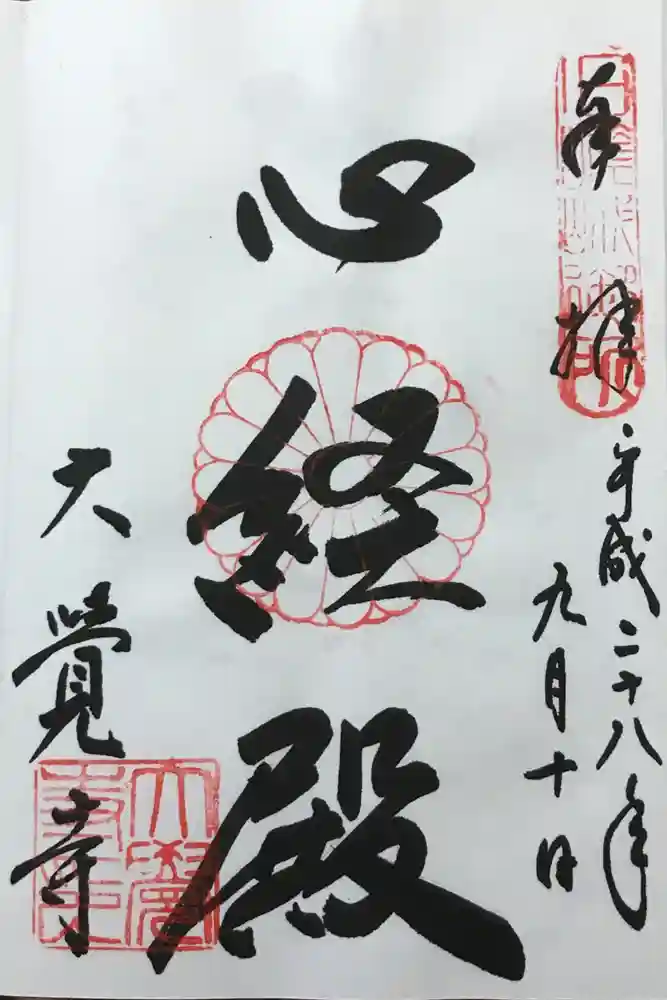 奉拝
平成二十八年
九月十日
心経殿
大覺寺